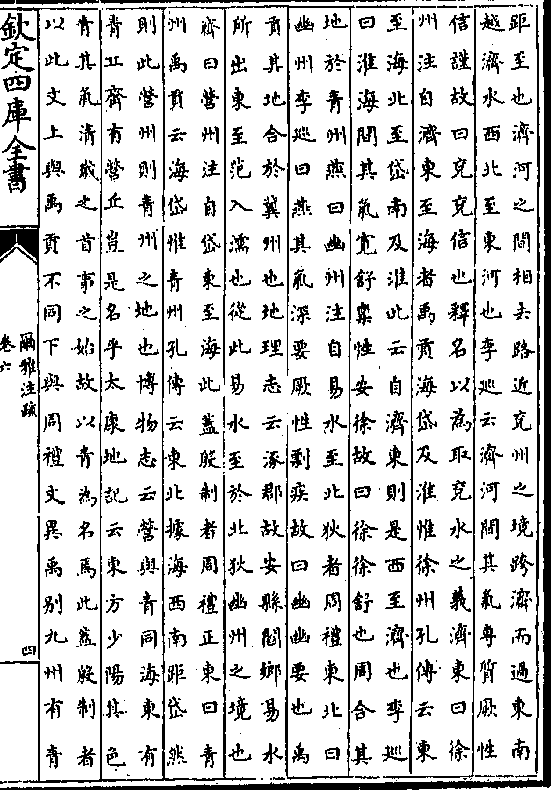 距至也濟河之間相去路近兗州之境跨濟而過東南
越濟水西北至東河也李巡云濟河間其氣專質厥性
信謹故曰兗兗信也釋名以為取兗水之義濟東曰徐
州注自濟東至海者禹貢海岱及淮惟徐州孔傳云東
至海北至岱南及淮此云自濟東則是西至濟也李巡
曰淮海間其氣寛舒稟性安徐故曰徐徐舒也周合其
地於青州燕曰幽州注自易水至北狄者周禮東北曰
幽州李巡曰燕其氣深要厥性剽疾故曰幽幽要也禹
貢其地合於冀州也地理志云涿郡故安縣閻鄉易水
所出東至范入濡也從此易水至於北狄幽州之境也
齊曰營州注自岱東至海此蓋殷制者周禮正東曰青
州禹貢云海岱惟青州孔傳云東北據海西南距岱然
則此營州則青州之地也博物志云營與青同海東有
青丘齊有營丘豈是名乎太康地記云東方少陽其色
青其氣清歲之首事之始故以青為名焉此蓋殷制者
以此文上與禹貢不同下與周禮文異禹別九州有青
欽定四庫全書
爾雅注疏
卷六
四